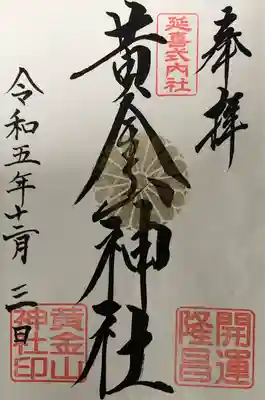 奉拝
延喜式内社
黄金神社
開運
隆昌
黄金山
神社印
令和五年十二月三日